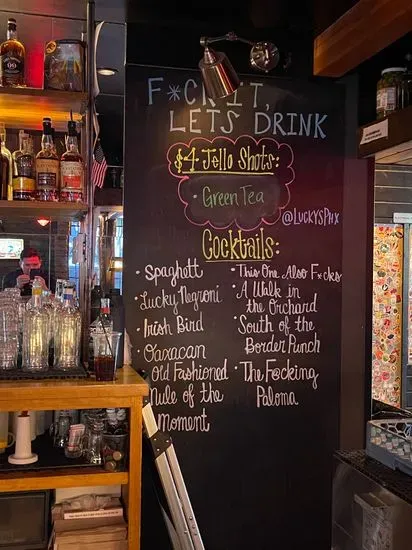 F*CK IT,
LETS DRINK
$4 Jello Shots:
· Green Tea
@LUCKYSPHX
Cocktails:
· Spaghett
· Lucky Negroni
· Irish Bird
· Oaxacan
Old Fashioned
· Mule of the
Moment
· This One Also F*cks
· A Walk in
the Orchard
· South of the
Border Punch
· The F@cking
Paloma